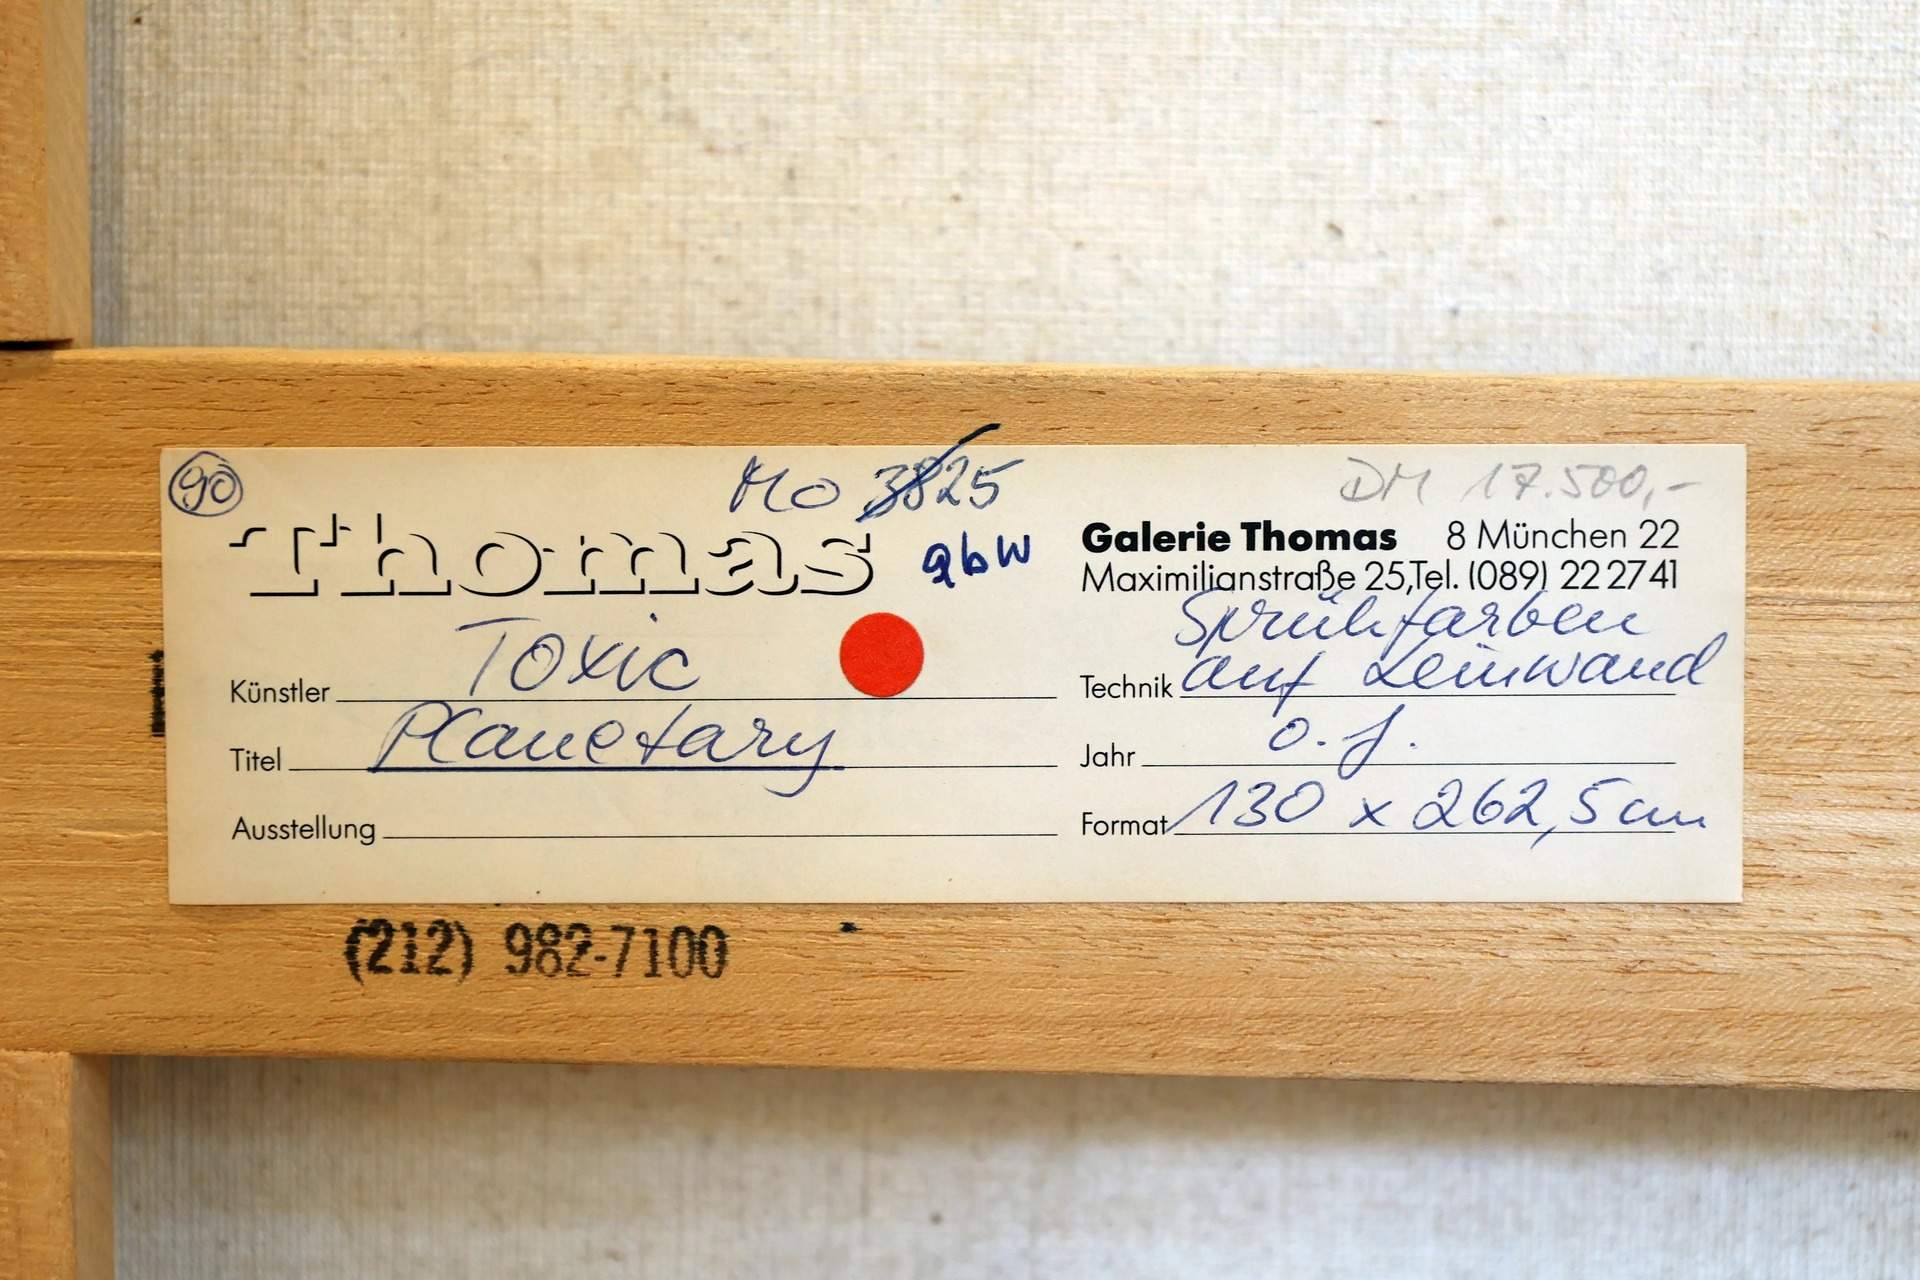 90
Mo 3825
DM 17.500,-
Thomas
abw
Galerie Thomas 8 München 22
Maximilianstraße 25,Tel. (089) 22 27 41
Künstler Toxic
Titel Planetary
Ausstellung
Technik Sprühfarben
auf Leinwand
Jahr o. J.
Format 130 x 262,5 cm
(212) 982-7100